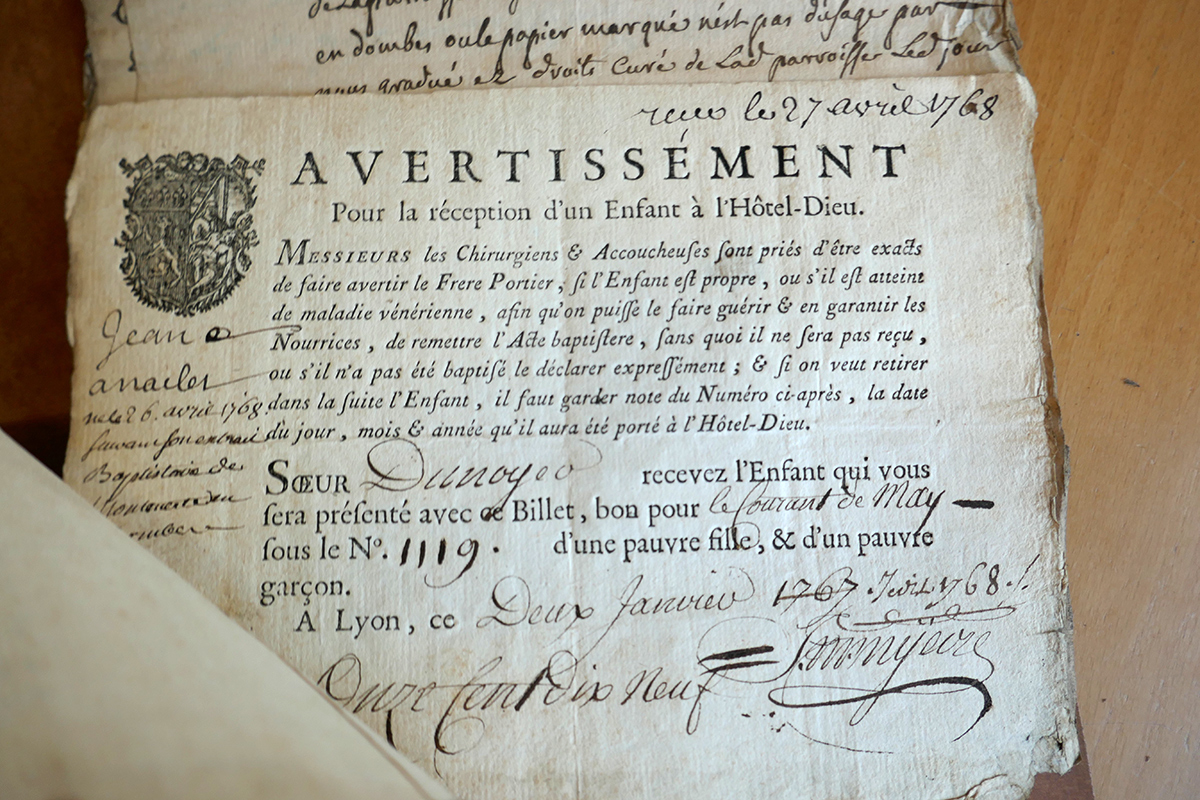 en dombes ou le papier marqué n'est pas d'usage par
nous gradué et droits Curé de Lad parroisse Led jour
receu le 27 avril 1768
AVERTISSÉMENT
Pour la réception d'un Enfant à l'Hôtel-Dieu.
MESSIEURS les Chirurgiens & Accoucheuſes ſont priés d'être exacts
de faire avertir le Frere Portier, ſi l'Enfant eſt propre, ou s'il est atteint
de maladie vénérienne, afin qu'on puiſſe le faire guérir & en garantir les
Nourrices, de remettre l'Acte baptiſtere, ſans quoi il ne ſera pas reçu,
ou s'il n'a pas été baptiſé le déclarer expreſſément; & ſi on veut retirer
dans la ſuite l'Enfant, il faut garder note du Numéro ci-après, la date
du jour, mois & année qu'il aura été porté à l'Hôtel-Dieu.
Jean
anaclet
né le 26. avril 1768
suivant son extrait
Baptistaire de
SŒUR Dunoyer recevez l'Enfant qui vous
ſera préſenté avec ce Billet, bon pour le Courant de May
ſous le N°. 1119. d'une pauvre fille, & d'un pauvre
garçon.
À Lyon, ce Deux Janvier 1767 1768.
Onze Cent dix Neuf